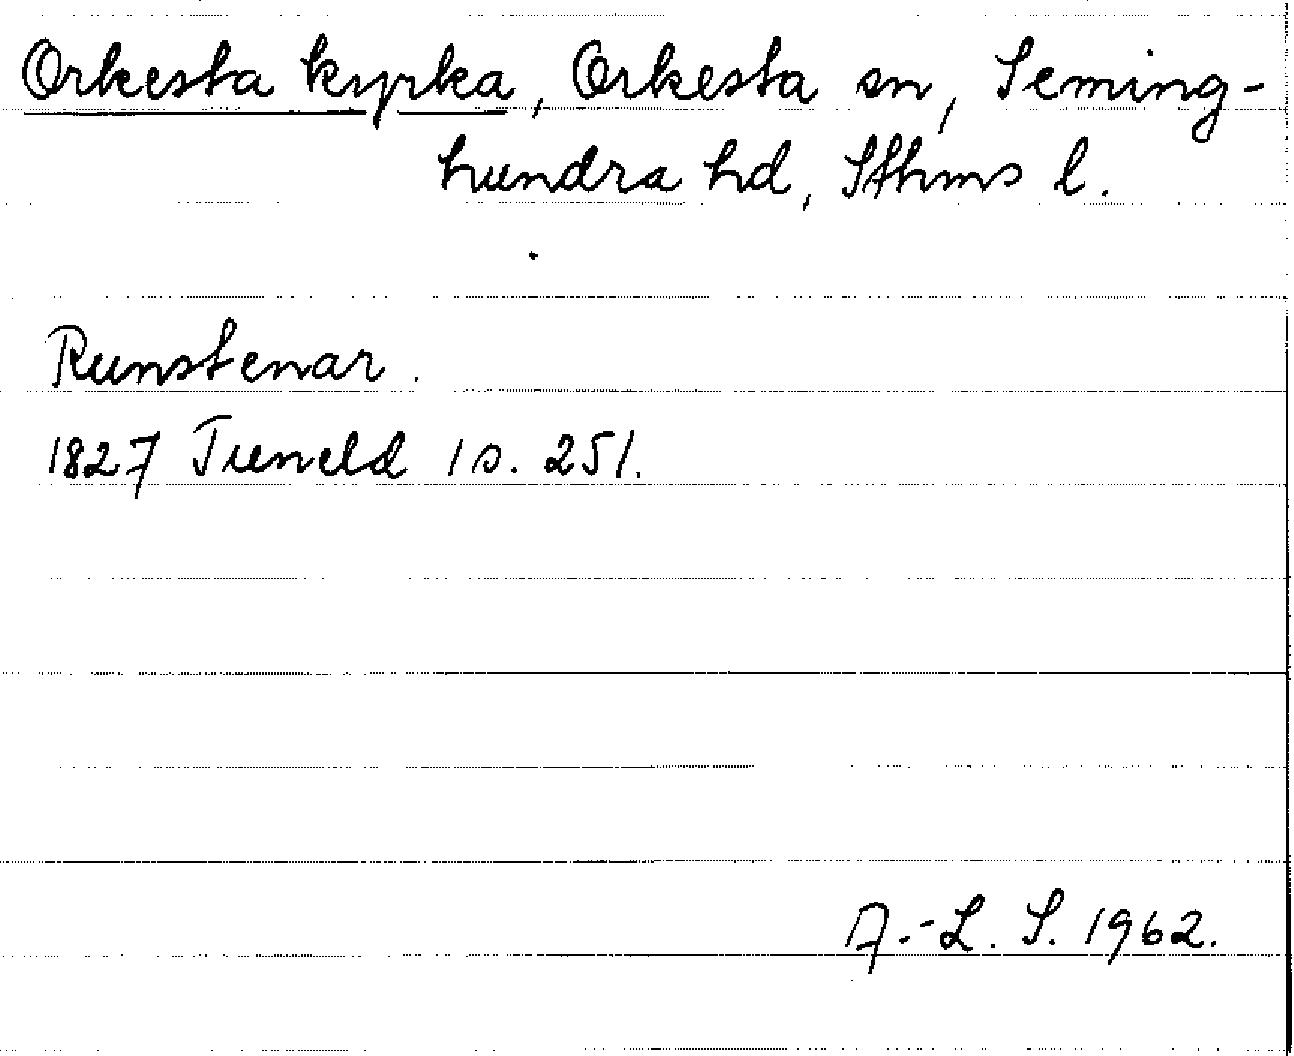 Orkesta kyrka, Orkesta sn, Seming-
hundra hd, Sthms l.
Runstenar.
1827 Tuneld 1 s. 251.
A.-L. S. 1962.